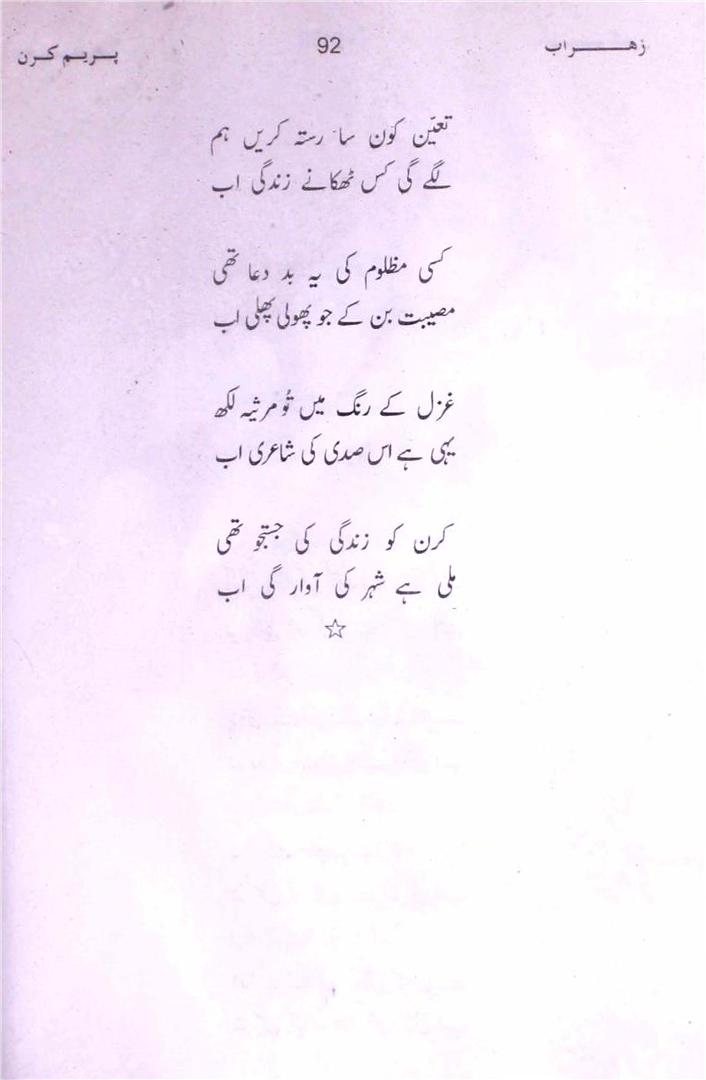 زهراب 92 پریم کرن
تعیّن کون سا رستہ کریں ہم
لگے گی کس ٹھکانے زندگی اب
کسی مظلوم کی یہ بد دعا تھی
مصیبت بن کے جو پھولی پھلی اب
غزل کے رنگ میں تُو مرثیہ لکھ
یہی ہے اس صدی کی شاعری اب
کرن کو زندگی کی جستجو تھی
ملی ہے شہر کی آوار گی اب
☆